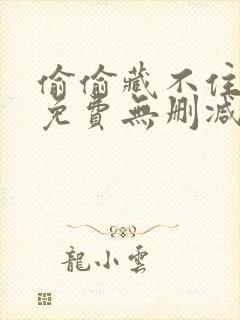 偷偷藏不住
免費無刪減
龍小雲